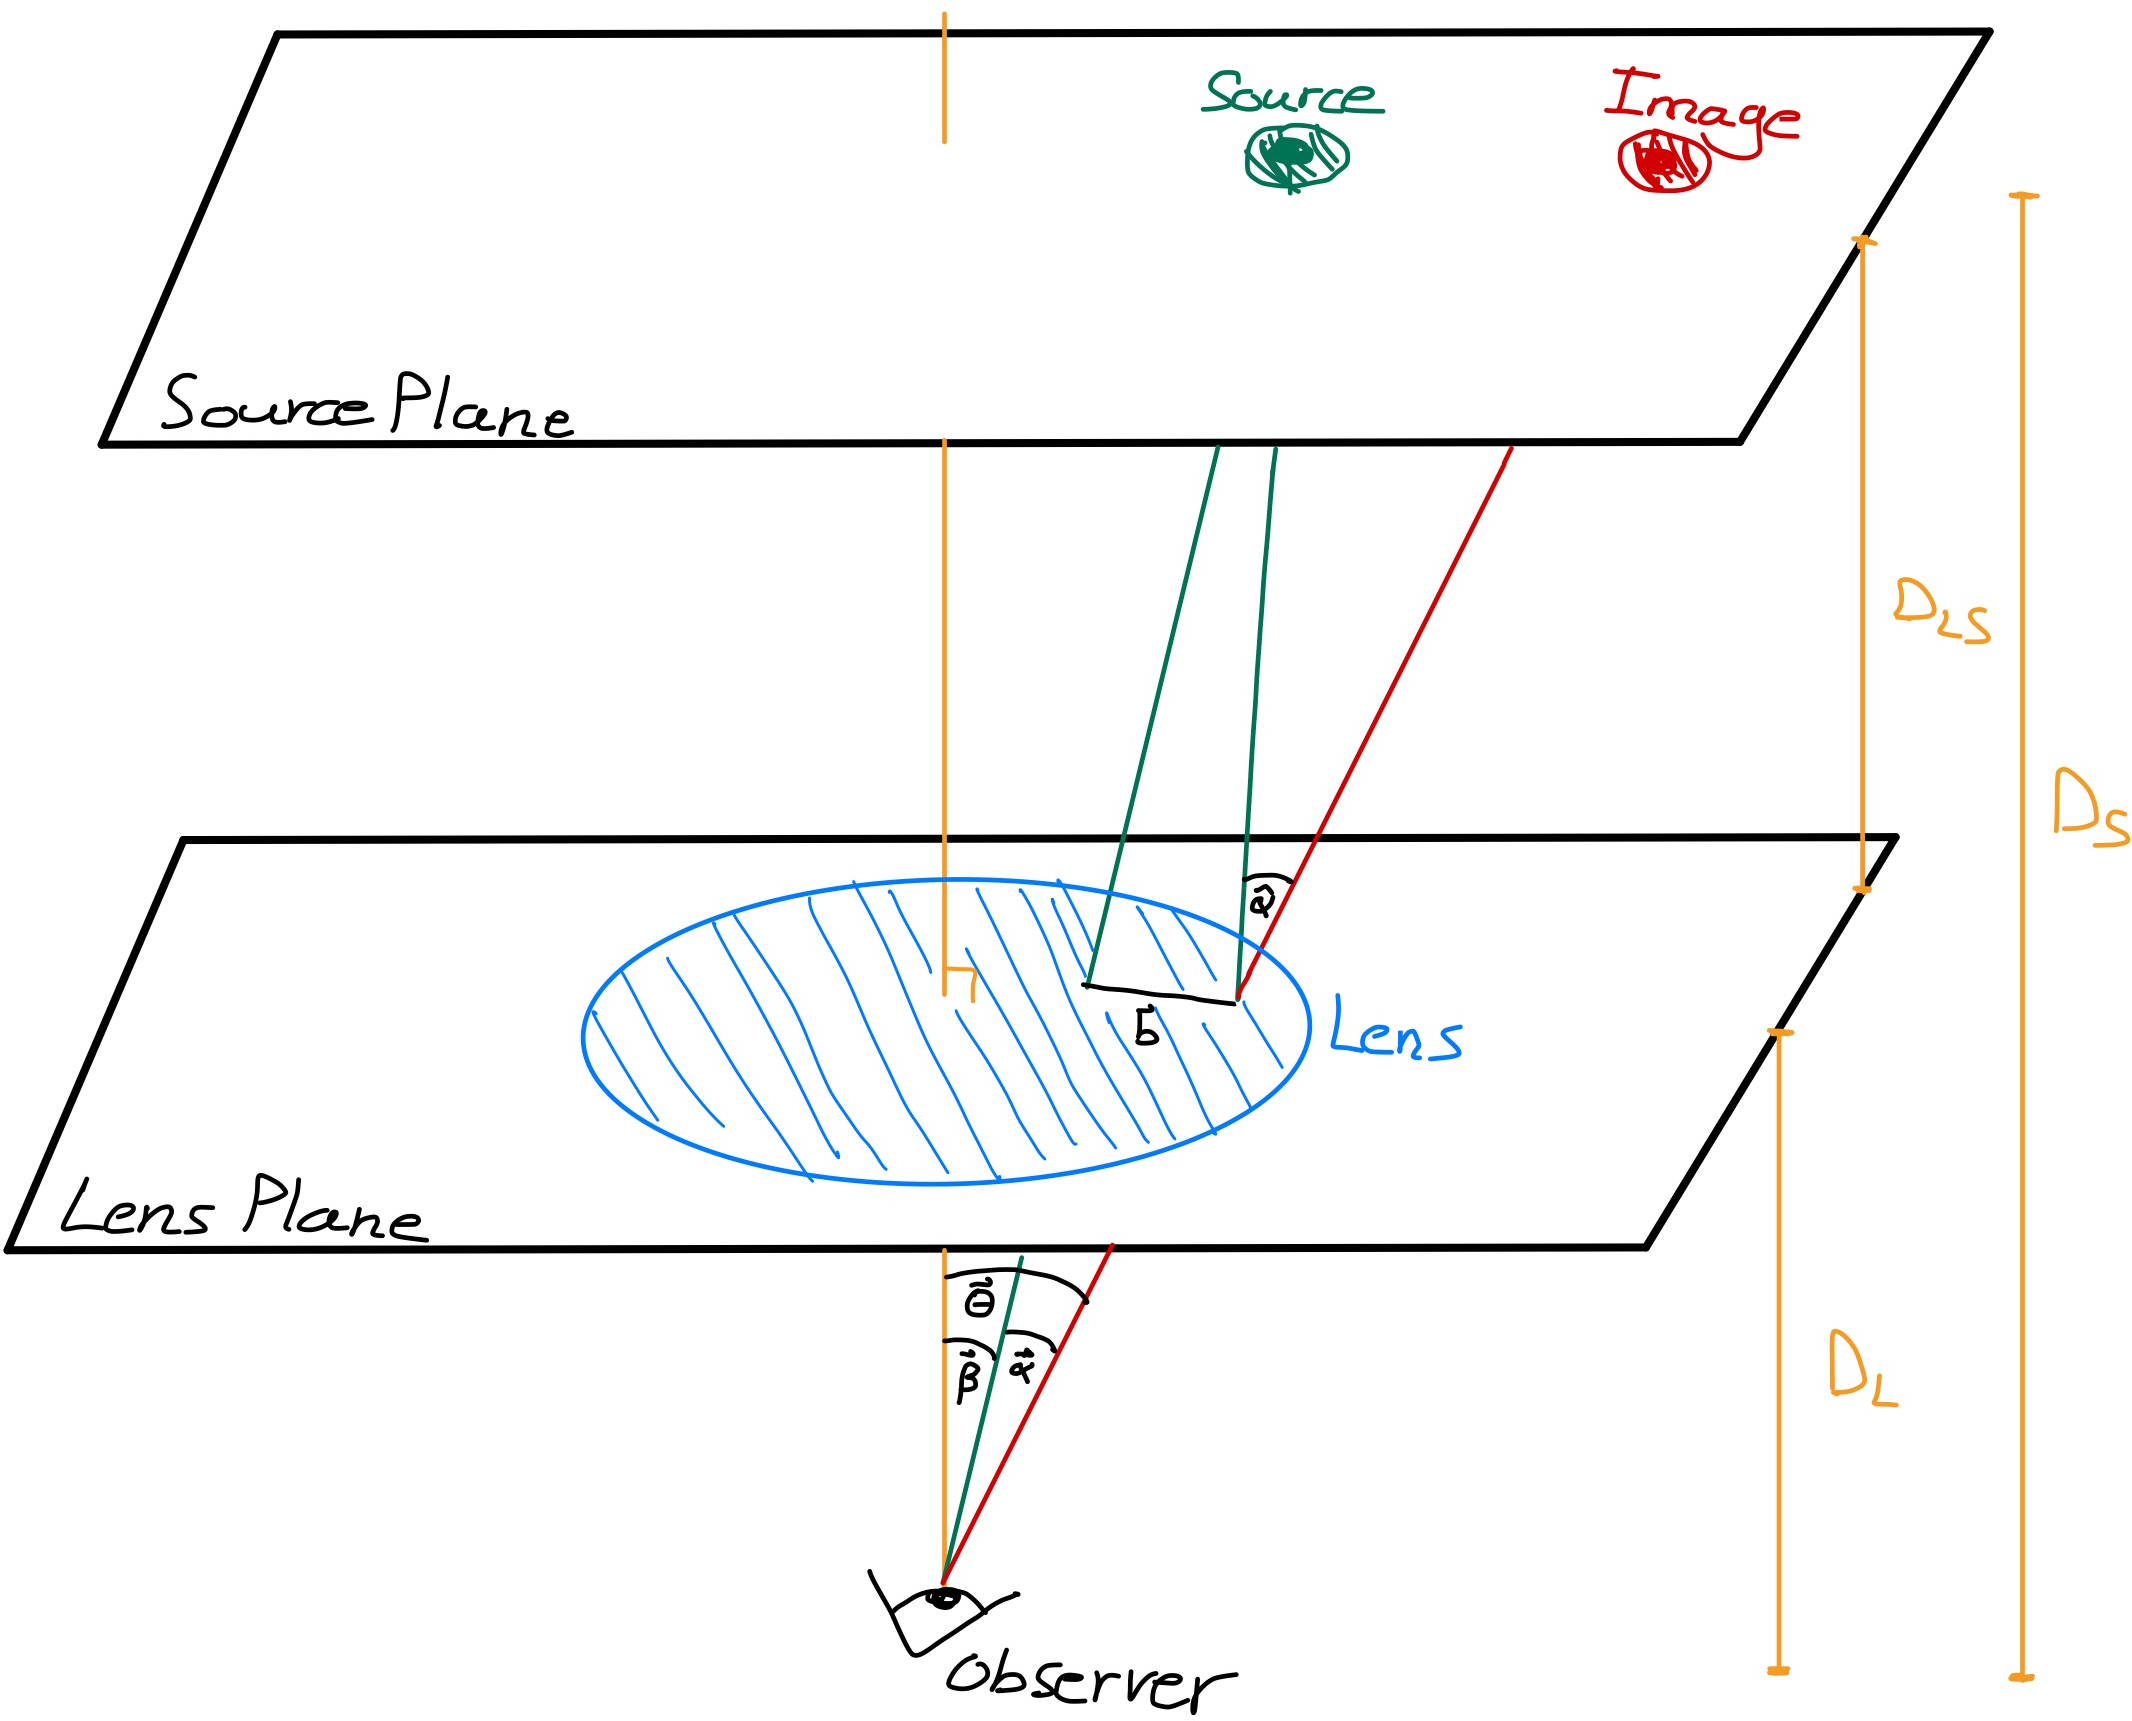 Source
Image
Source Plane
D_LS
D_S
α̂
b⃗
Lens
Lens Plane
θ⃗
β⃗
α⃗
D_L
Observer